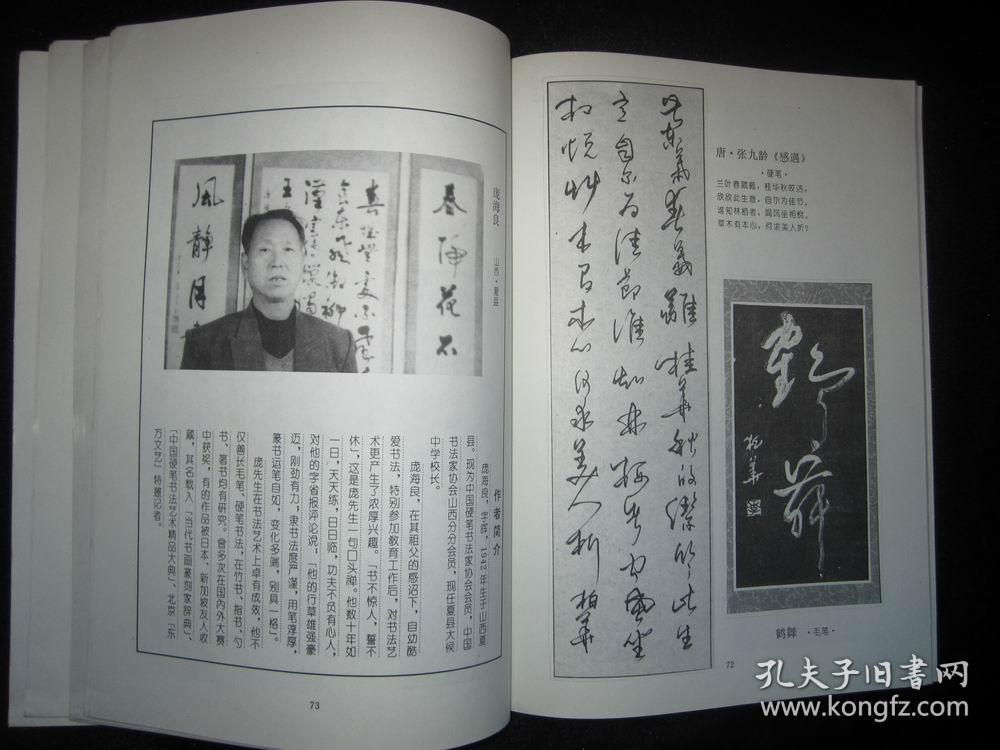 唐·张九龄《感遇》
·硬笔·
兰叶春葳蕤，桂华秋皎洁，
欣欣此生意，自尔为佳节。
谁知林栖者，闻风坐相悦，
草木有本心，何求美人折？
蘭葉春葳蕤桂華秋皎潔欣欣此生
意自尔为佳節谁知林栖者闻風坐
相悦草木有本心何求美人折
鶴舞
鹤舞 ·毛笔·
72
庞海良
山西·夏县
春归花不
風静月
作者简介
庞海良，字辉，1942年生于山西夏
县。现为中国硬笔书法家协会会员，中国
书法家协会山西分会会员，现任夏县大侯
中学校长。
庞海良，在其祖父的感沼下，自幼酷
爱书法，特别参加教育工作后，对书法艺
术更产生了浓厚兴趣。「书不惊人，誓不
休」，这是庞先生一句口头禅。他数十年如
一日，天天练，日日临，功夫不负有心人，
对他的字省报评论说：「他的行草雄强豪
迈，刚劲有力，隶书法度严谨，用笔淳厚，
篆书运笔自如，变化多端，别具一格」。
庞先生在书法艺术上卓有成效，他不
仅善长毛笔、硬笔书法，在竹书、指书、勺
书、箸书均有研究。曾多次在国内外大赛
中获奖，有的作品被日本、新加坡友人收
藏，其名载入「当代书画篆刻家辞典」、
「中国硬笔书法艺术精品大典」、北京「东
方文艺」特邀记者。
73
孔夫子旧书网
www.kongfz.com